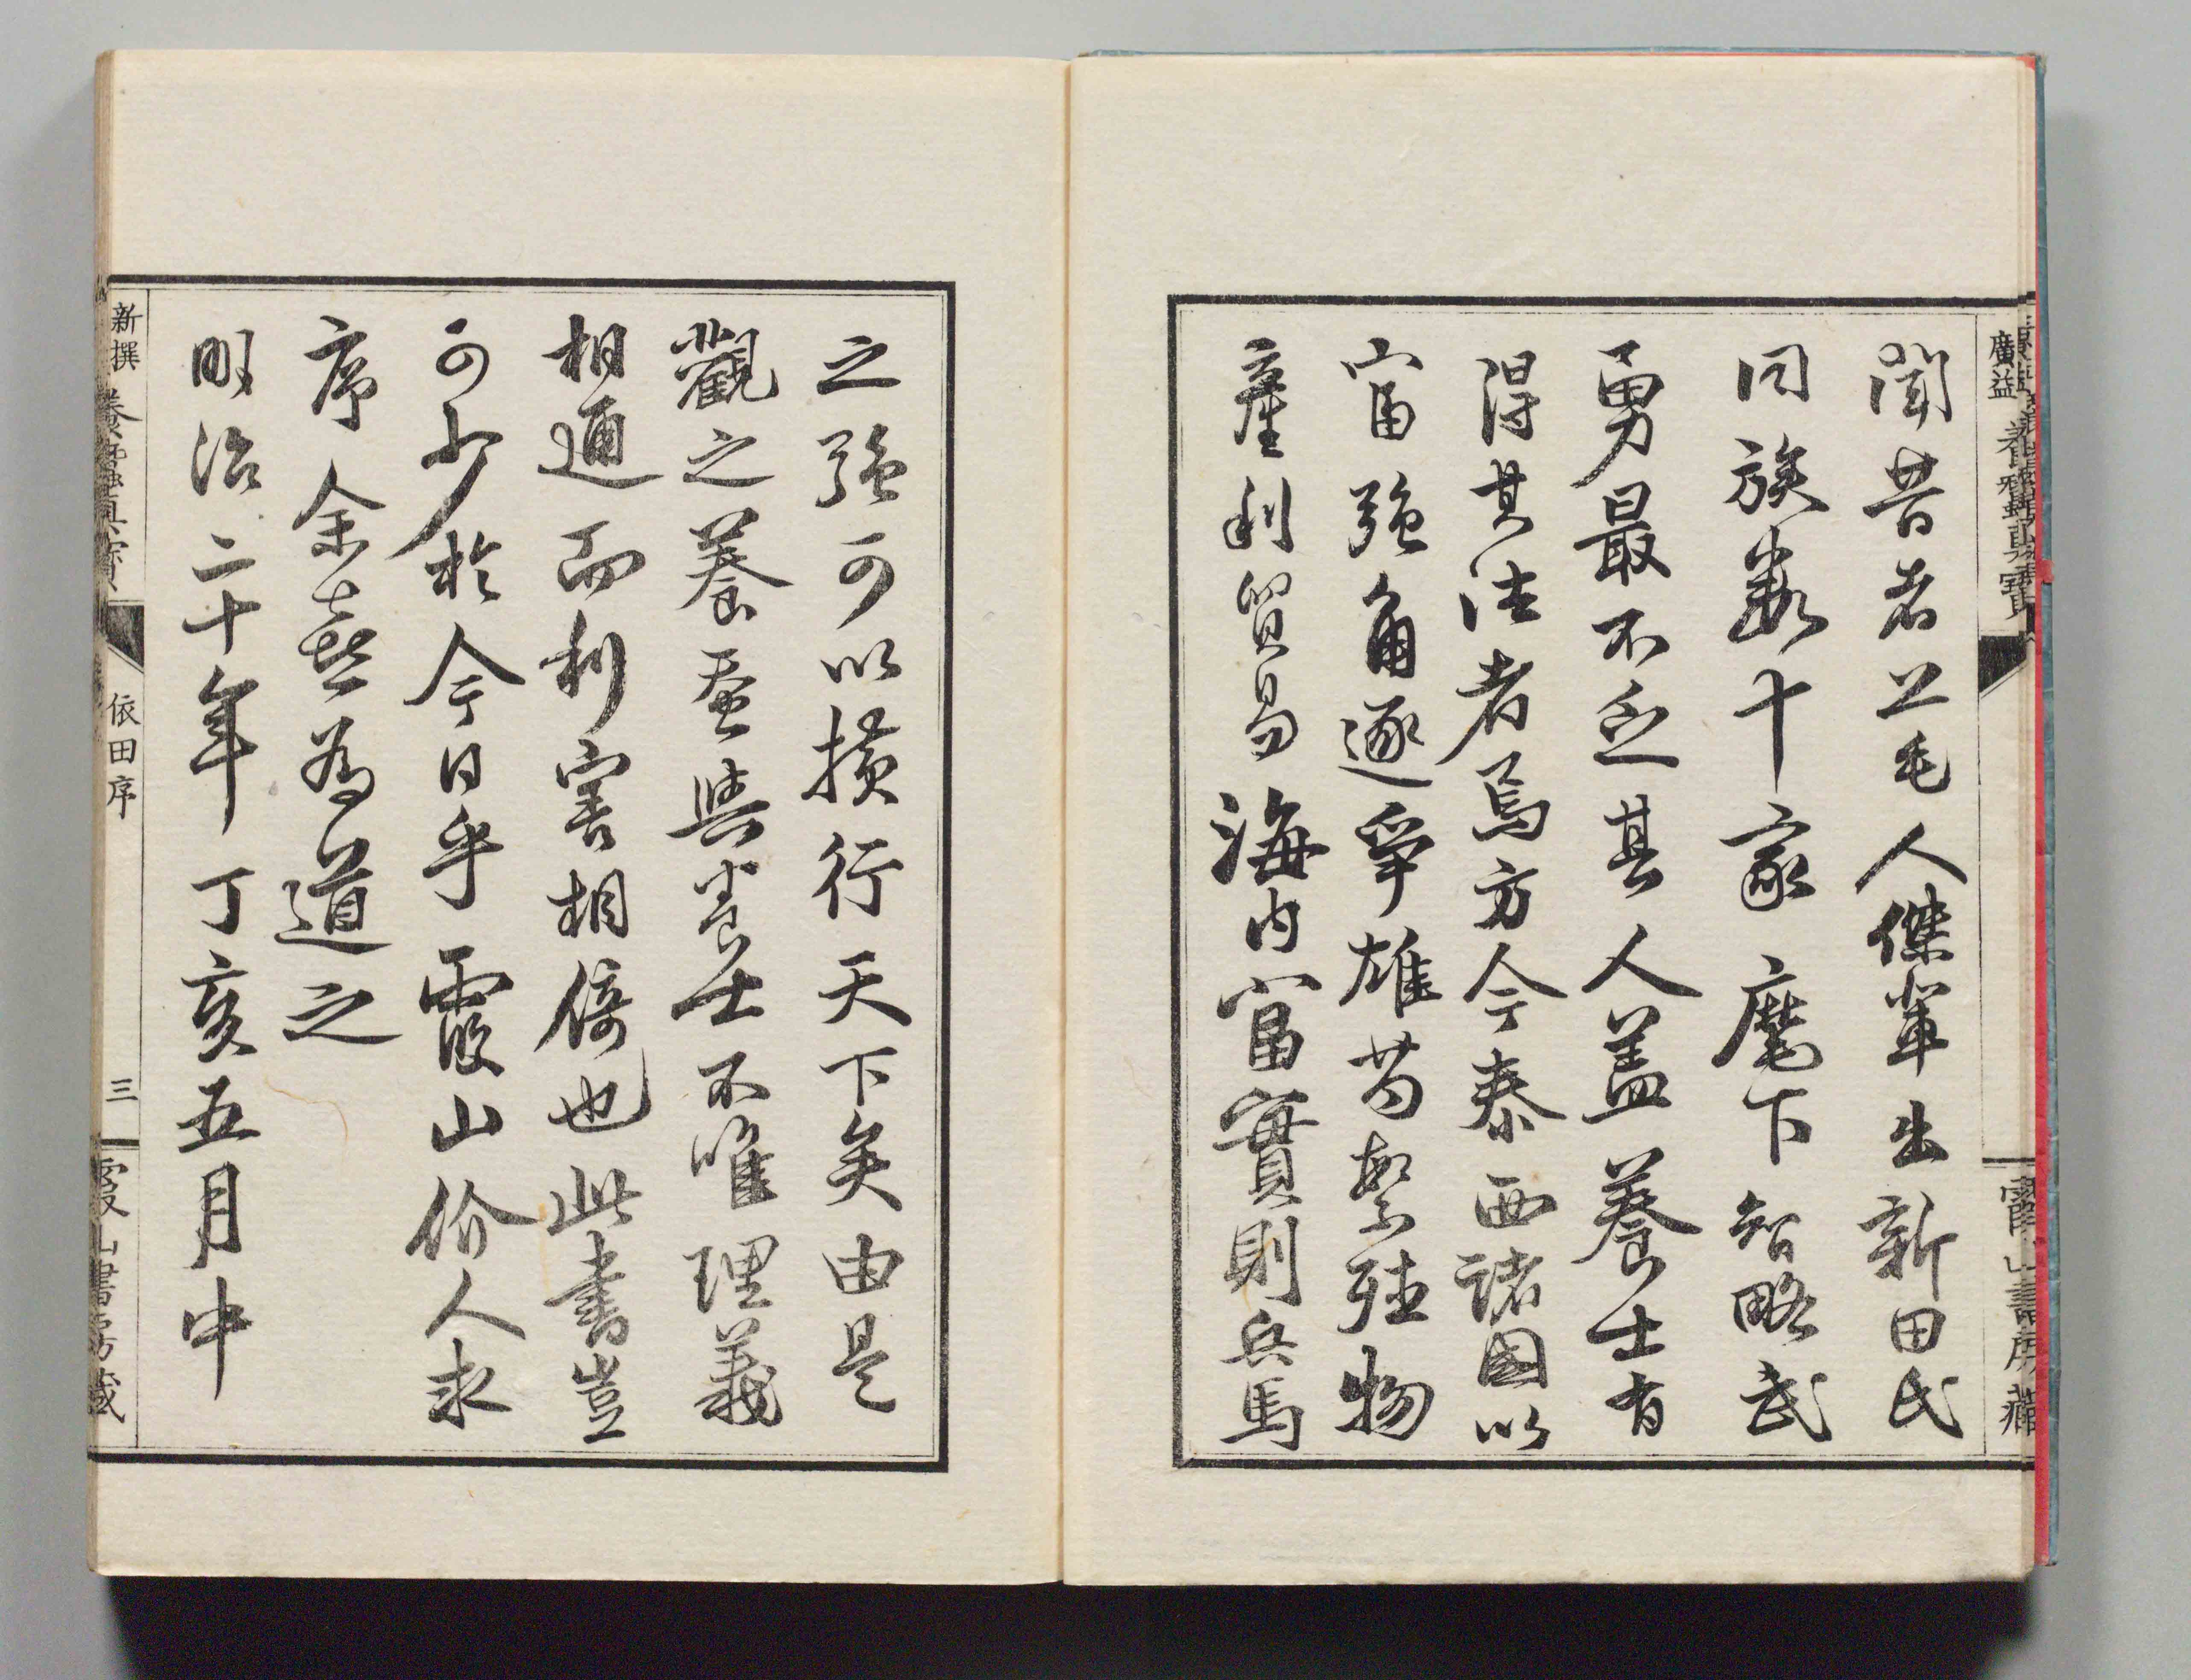 廣益
養蠶眞寶
霞山書房藏
聞昔者上毛人傑輩出新田氏
同族數十家麾下智略武
勇最不乏其人盖養士有
得其法者焉方今泰西諸國以
富強角逐爭雄苟繁殖物
產利貿易海内富實則兵馬
之強可以横行天下矣由是
觀之養蚕與養士不唯理義
相通而利害相倚也此書豈
可少於今日乎霞山价人求
序余喜為道之
明治二十年丁亥五月中
新撰
養蠶眞寶
依田序
三
霞山書房藏